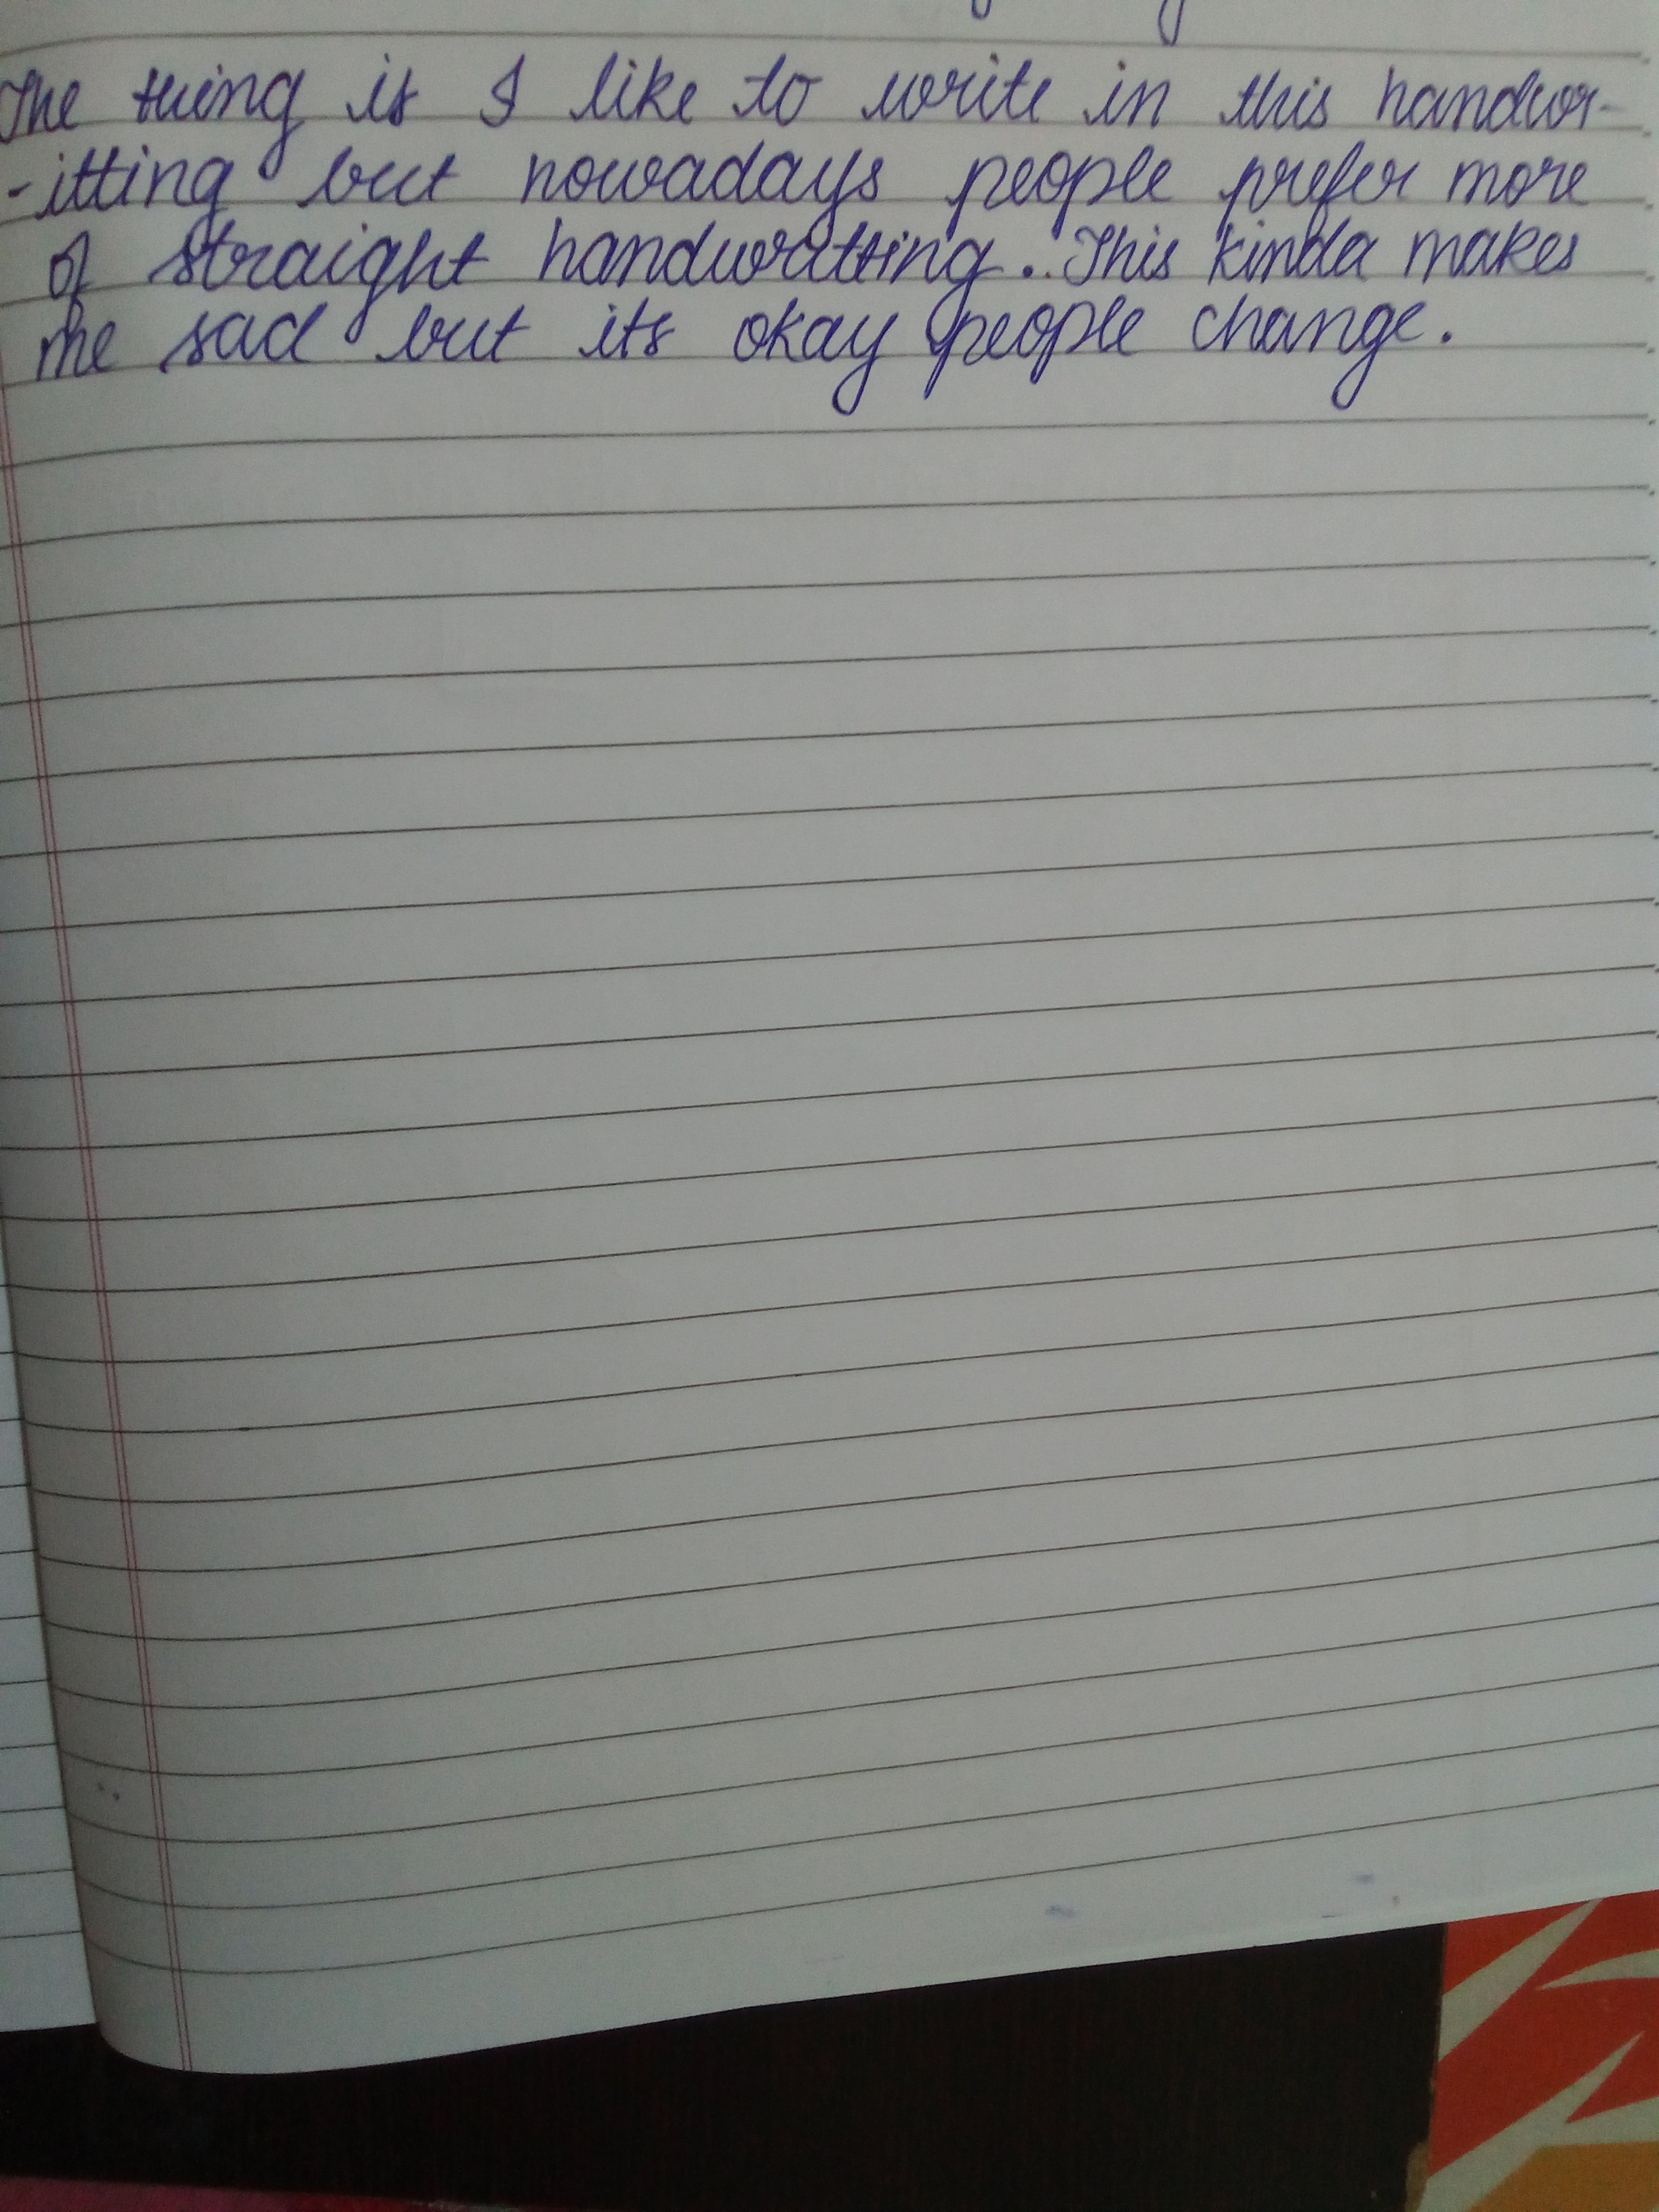 The thing is I like to write in this handwr-
-itting but nowadays people prefer more
of straight handwritting. This kinda makes
me sad but its okay people change.